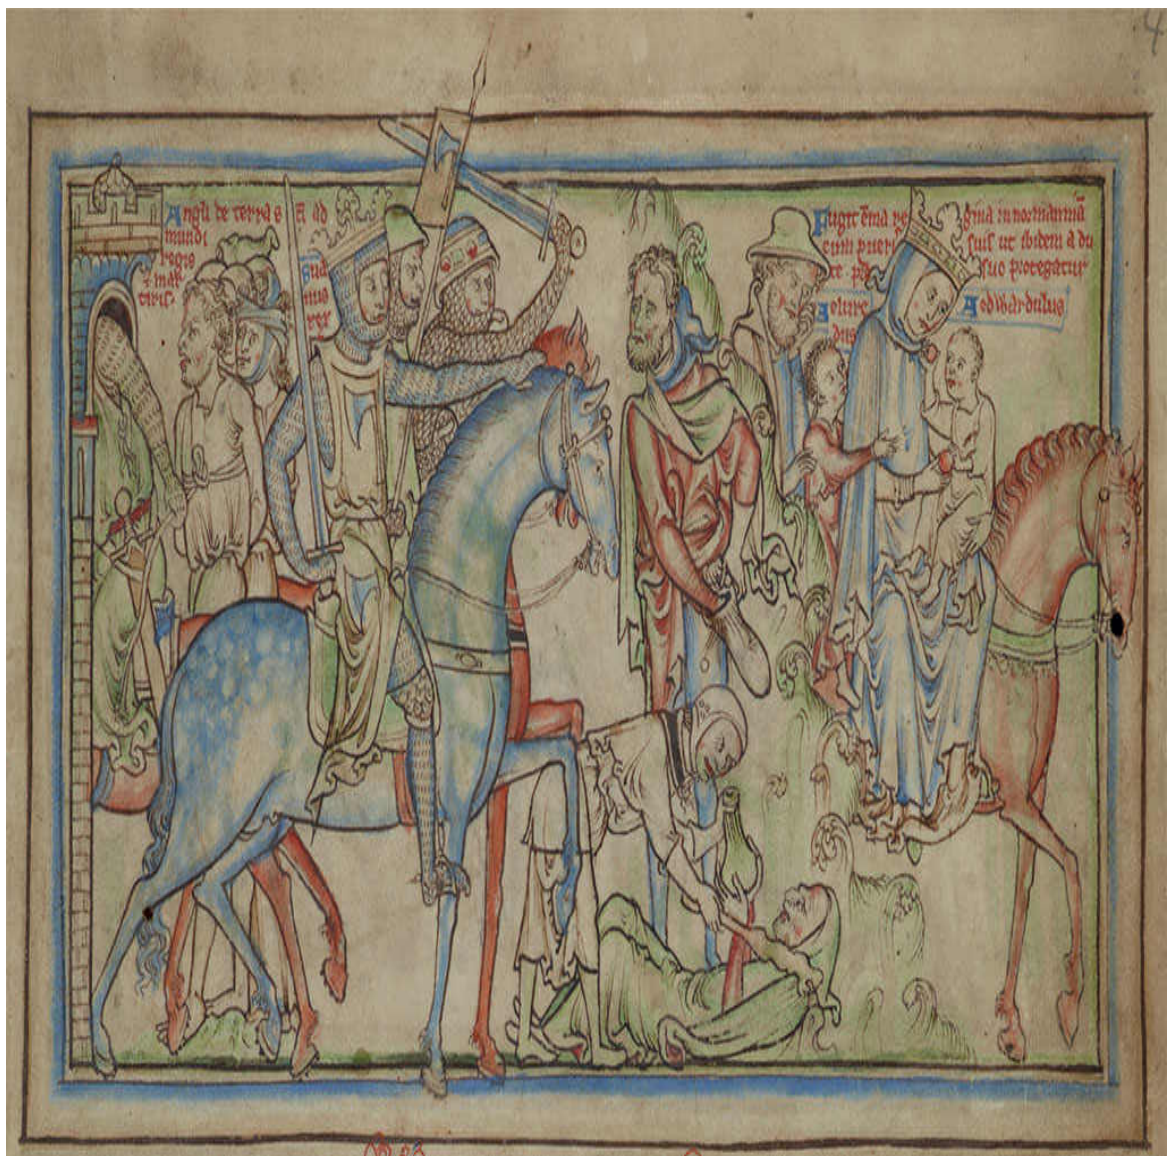 Angli de terra s
mundi
regis
& mar
tiris
ad
mus
rex
Fugit Emma re gina in normanniā
cum pueris suis ut ibidem a du
ce suo protegatur
Aelure
dus
Aedwardulus
4